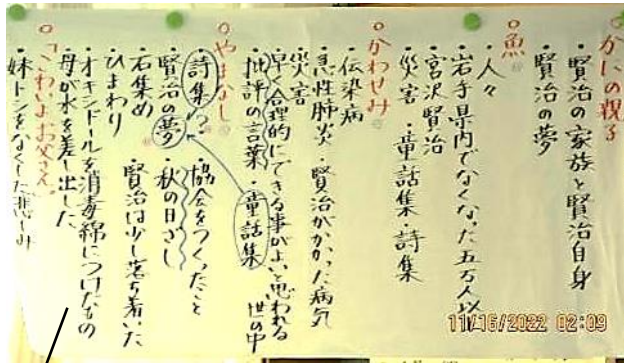 ○かにの親子
・賢治の家族と賢治自身
・賢治の夢
○魚
・人々
・岩手県内でなくなった五万人以
・宮沢賢治
・災害・童話集・詩集
○かわせみ
・伝染病
・急性肺炎・賢治がかかった病気
・災害
・早く合理的にできる事がよいと思われる世の中
・批評の言葉・童話集
○やまなし
・詩集?・協会をつくったこと
・賢治の夢・秋の日ざし
・石集め 賢治は少し落ち着いた
・ひまわり
・オキシドールを消毒綿につけたもの
・母が水を差し出した
○「こわいよお父さん」
・妹トシをなくした悲しみ
11/16/2022 02:09